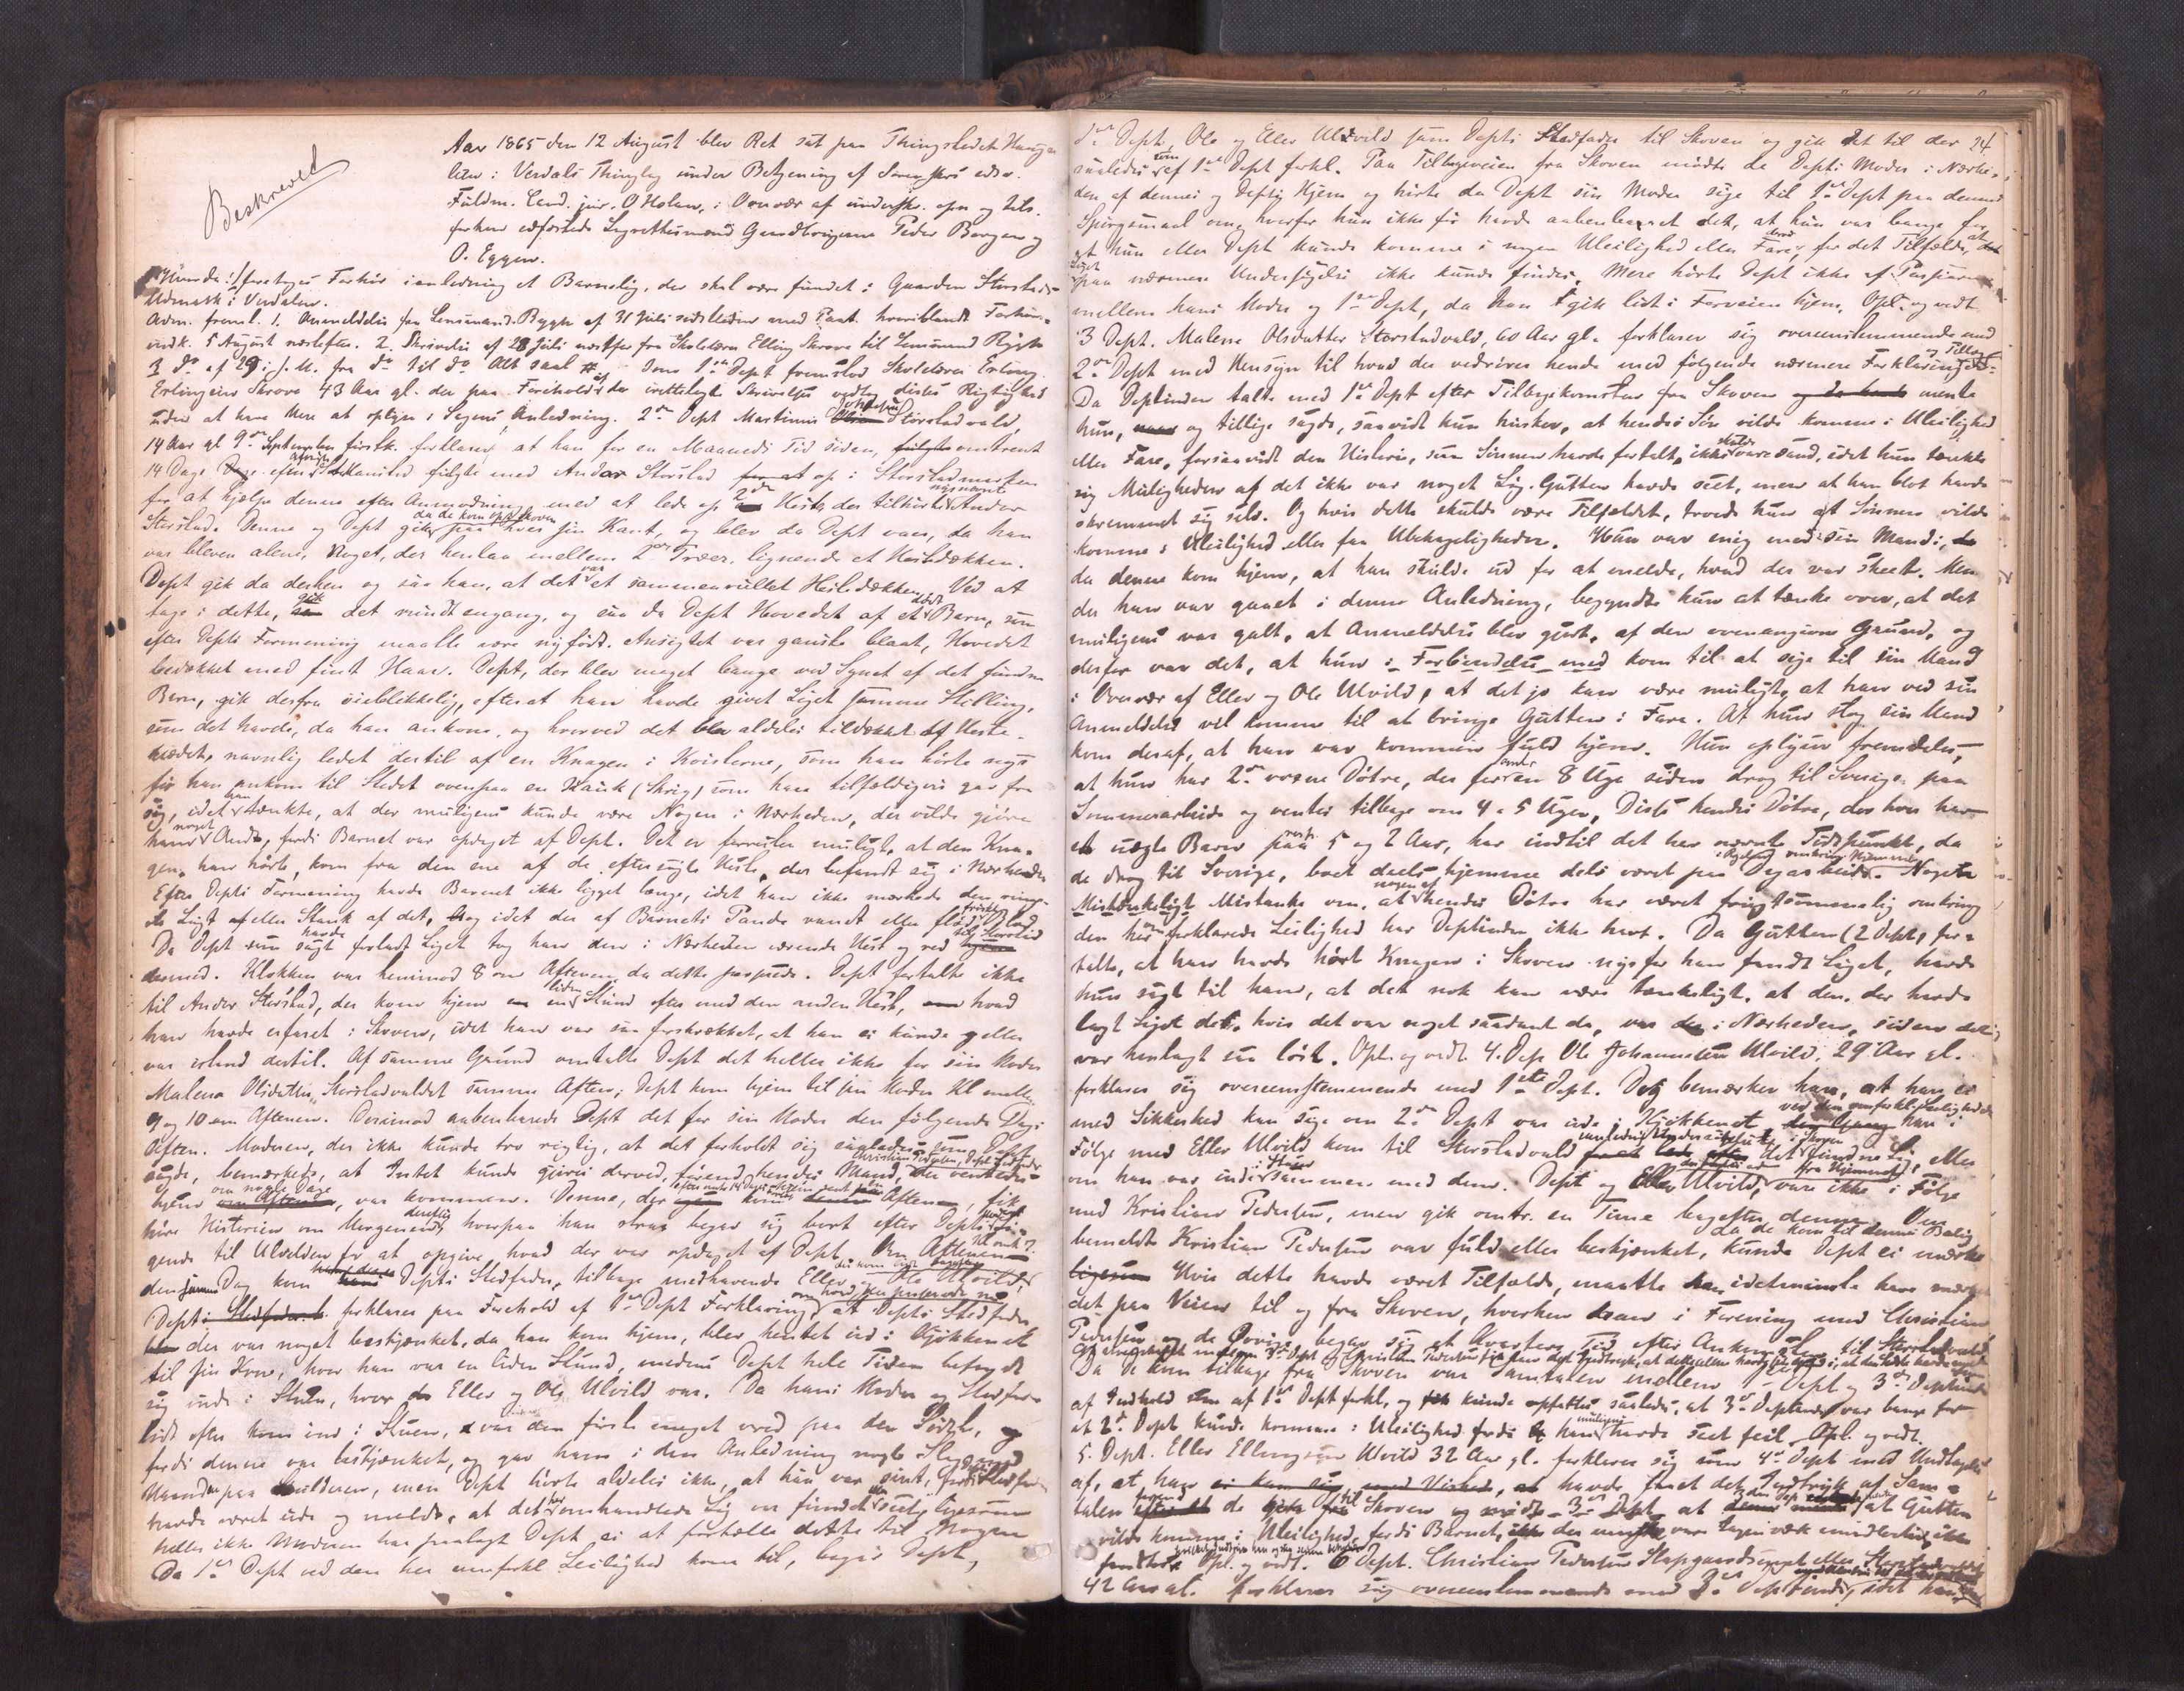 Beskrevet
Aar 1865 den 12 August blev Ret sat paa Thingstedet Haugs-
leten i Verdals Thinglag under Betjening af Sorenskr's edsv.
Fuldm. Cand. jur. O Holan, i Overvær af underskr. opn og tils.
forhen edfæstede Lagrettesmænd Gaardbrugerne Peder Borgen og
O. Eggen.
Hvorda: foretoges Forhør i anledning et Barnelig, der skal være fundet i Gaarden Storstads
Udmark i Verdalen.
Adm. freml. 1. Anmeldelse fra Lensmand Rygh af 31 Juli sidstleden med Paat. hvoriblandt Forhørs-
berammelse 5 August næstefter. 2. Skrivelse af 28 Juli næstfør fra Skolelærer Elling Skrove til Lensmand Rygh
3 do af 29 i. s. M. fra do til do Alt saal # Som 1ste Dept fremstod Skolelærer Erling
Erlingsen Skrove 43 Aar gl. der paa Forehold af de irettelagte Skrivelser vedtog disses Rigtighed
uden at have Mere at oplyse i Sagens Anledning. 2den Dept Martinus Johannesen Storstadvald,
14 Aar gl 9de September førstk. forklarer at han for en Maaneds Tid siden, omtrent
14 Dage efter Slaattens fulgte med Andor Storstad op i Storstadmarken
for at hjælpe denne efter Anmodning med at lede op 2de Heste, der tilhørte nysnævnt Andor
Storstad. Denne og Dept gik, da de kom op i Skoven paa hver sin Kant, og blev da Dept vaer, da han
var bleven alene, Noget, der henlaa mellem 2de Træer, lignende et Hestedækken.
Dept gik da derhen og saa han, at det var et sammenrullet Hestedækken. Ved at
tage i dette, gik det rundt engang, og saa da Dept Hovedet af et dødt Barn, som
efter Depts Formening maatte være nyfødt. Ansigtet var ganske blaat, Hovedet
bedækket med fint Haar. Dept, der blev meget bange ved Synet af det fundne
Barn, gik derfra øieblikkelig, efterat han havde givet Liget samme Stilling,
som det havde, da han ankom, og hvorved det blev aldeles tildækket af Heste-
klædet, navnlig ledet dertil af en Knagen i Kvisterne, som han hørte nys
før han ankom til Stedet ovenpaa en Hauk (Skrig) som han tilfældigvis gav fra
sig, idet han tænkte, at der muligens kunde være Nogen i Nærheden, der vilde gjøre
ham noget Ondt, fordi Barnet var opdaget af Dept. Det er forresten muligt, at den Kna-
gen, han hørte, kom fra den ene af de eftersøgte Heste, der befandt sig i Nærheden
Efter Depts Formening havde Barnet ikke ligget længe, idet han ikke mærkede den ringe-
ste Lugt eller Stank af det, og idet der af Barnets Pande randt eller flød friskt Blod
Da Dept som sagt havde forladt Liget tog han den i Nærheden værende Hest og red til Storstad
dermed. Klokken var henimod 8 om Aftenen, da dette passerede. Dept fortalte ikke
til Andor Storstad, der kom hjem en liden Stund efter med den anden Hest, hvad
han havde erfaret i Skoven, idet han var saa forskrækket, at han ei kunde eller
var istand dertil. Af samme Grund omtalte Dept det heller ikke for sin Moder
Malena Olsdatter, Storstadvaldet samme Aften; Dept kom hjem til sin Moder Kl mellem
9 og 10 om Aftenen. Derimod aabenbarede Dept det for sin Moder den følgende Dags
Aften. Moderen, der ikke kunde tro rigtig, at det forholdt sig saaledes som Dept
sagde, bemærkede, at Intet kunde gjøres derved, førend hendes Mand, Christian Pedersen, Depts Stedfader der ventedes
hjem om nogle Dage, var kommen. Denne, der Aften, fik
høre Historien om Morgenen derefter, hvorpaa han strax begav sig bort efter Depts
gende til Ulvilden for at opgive, hvad der var opdaget af Dept. Om Aftenen
den samme Dag kom Depts Stedfader, tilbage medhavende Eller og Ole Ulvild,
forklarer paa Forehold af 1ste Dept Forklaring at Depts Stedfader
der var noget beskjænket, da han kom hjem, blev hentet ind i Kjøkkenet
til sin Kone, hvor han var en liden Stund, medens Dept hele Tiden befandt
sig inde i Stuen, hvor Eller og Ole Ulvild var. Da hans Moder og Stedfader
lidt efter kom ind i Stuen, var den første meget vred paa den Sidste,
fordi denne var beskjænket, og gav ham i den Anledning nogle Slag med
Haanden paa Skulderen, men Dept hørte aldeles ikke, at hun var sint, fordi Stedfader
havde været ude og meldt, at det her omhandlede Lig var fundet, ligesom
heller ikke Moderen har paalagt Dept ei at fortælle dette til Nogen
Da 1ste Dept ved den her omforkl Leilighed kom til, begav Dept,
24
1ste Dept, Ole og Eller Ulvild samt Depts Stedfader til Skoven og gik det til der
saaledes som af 1ste Dept forkl. Paa Tilbageveien fra Skoven mødte de Depts Moder i Nærhe-
den af dennes og Depts Hjem og hørte da Dept sin Moder sige til 1ste Dept paa dennes
Spørgsmaal om, hvorfor hun ikke før havde aabenbaret det, at hun var bange for,
at hun eller Dept kunde komme i nogen Uleilighed eller Fare, for det Tilfælde, at
Liget paa nærmere Undersøgelse ikke kunde findes. Mere hørte Dept ikke af Passiaren
mellem hans Moder og 1ste Dept, da han gik lidt i Forveien hjem. Opl. og vedt.
3 Dept. Malene Olsdatter Storstadvald, 60 Aar gl. forklarer sig overensstemmende med
2den Dept med Hensyn til hvad der vedrører hende med følgende nærmere Forklaring og Tillæg:
Da Deptinden talte med 1ste Dept efter Tilbagekomsten fra Skoven mente
hun, og tillige sagde, saavidt hun husker, at hendes Søn vilde komme i Uleilighed
eller Fare, forsaavidt den Historie, som Sønnen havde fortalt, ikke skulde være sand, idet hun tænkte
sig Muligheden af det ikke var noget Lig, Gutten havde seet, men at han blot havde
skræmmet sig selv. Og hvis dette skulde være Tilfældet, troede hun at Sønnen vilde
komme i Uleilighed eller faa Ubehageligheder. Hun var enig med sin Mand i,
da denne kom hjem, at han skulde ud for at melde, hvad der var skeet. Men
da han var gaaet i denne Anledning, begyndte hun at tænke over, at det
muligens var galt, at Anmeldelse blev gjort, af den ovenangivne Grund, og
derfor var det, at hun i Forbindelse med kom til at sige til sin Mand
i Overvær af Eller og Ole Ulvild, at det jo kan være muligt, at han ved sin
Anmeldelse vil komme til at bringe Gutten i Fare. At hun slog sin Mand
kom deraf, at han var kommen fuld hjem. Hun oplyser fremdeles,
at hun har 2de voxne Døtre, der for omtr en 8 Uger siden drog til Sverige paa
Sommerarbeide og ventes tilbage om 4 a 5 Uger. Disse hendes Døtre, der hver har
et uægte Barn paa resp. 5 og 2 Aar, har indtil det her nævnte Tidspunkt, da
de drog til Sverige, boet deels hjemme dels været paa Dagarbeide i Bygden omkring Hjemmet. Nogen
Mistænkeligt Mistanke om, at nogen af hendes Døtre har været frugtsommelig omkring
den her omforklarede Leilighed har Deptinden ikke havt. Da Gutten (2 Dept) for-
talte, at han havde hørt Knagen i Skoven nys før han fandt Liget, havde
hun sagt til ham, at det nok kan være tænkeligt, at den, der havde
lagt Liget det, hvis det var noget saadant da, var i Nærheden, siden det
var henlagt saa løst. Opl. og vedt. 4. Dep Ole Johannesen Ulvild, 29 Aar gl.
forklarer sig overensstemmende med 1ste Dept. Dog bemærker han, at han ei
med Sikkerhed kan sige om 2den Dept var ude i Kjøkkenet ved den omforkl. Leilighed da han i
Følge med Eller Ulvild kom til Storstadvald det fundne Lig, eller
om han var inde i Stuen sammen med dem. Dept og Eller Ulvild, var ikke i Følge
med Kristian Pedersen, men gik omtr. en Time bagefter denne. Om
bemeldte Kristian Pedersen var fuld eller beskjænket, da de kom til dennes Bolig kunde Dept ei mærke
Hvis dette havde været Tilfælde, maatte han idetmindste have mærket
det paa Veien til og fra Skoven, hvorhen han i Forening med Christian
Pedersen og de Øvrige begav sig et Qvarters Tid efter Ankomsten til Storstadvald
Da de kom tilbage fra Skoven var Samtalen mellem 1ste Dept og 3die Deptinde
af Indhold som af 1ste Dept forkl, og kunde opfattes saaledes, at 3die Deptinde var bange for
at 2den Dept kunde komme i Uleilighed fordi han muligens havde seet feil. Opl. og vedt.
5. Dept. Eller Ellingsen Ulvild 32 Aar gl. forklarer sig som 4de Dept med Undtagelse
af, at han havde faaet det Indtryk af Sam-
talen de Skoven og 3die Dept at at Gutten
vilde komme i Uleilighed, fordi Barnet,
Opl. og vedt. 6 Dept. Christian Pedersen
42 Aar gl. forklarer sig overensstemmende med 3die Deptinde, idet han